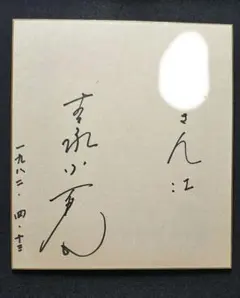 さん江
吉永小百合
一九八二・四・十三